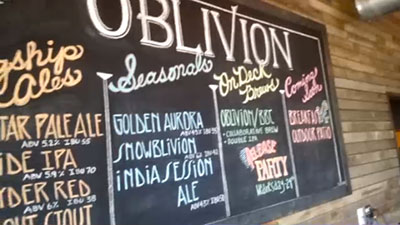 OBLIVION
gship
Ales
TAR PALE ALE
ABV 5.2% IBU 35
IDE IPA
ABV 5.9% IBU 70
YDER RED
ABV 6%
OUT STOUT
Seasonals
GOLDEN AURORA
SNOWBLIVION
INDIA SESSION
ALE
On Deck
Brews
OBLIVION/BIBC
- COLLABORATIVE BREW
- DOUBLE IPA
RELEASE
PARTY
Coming
Soon
BREAKFAST
OUTDOOR PATIO